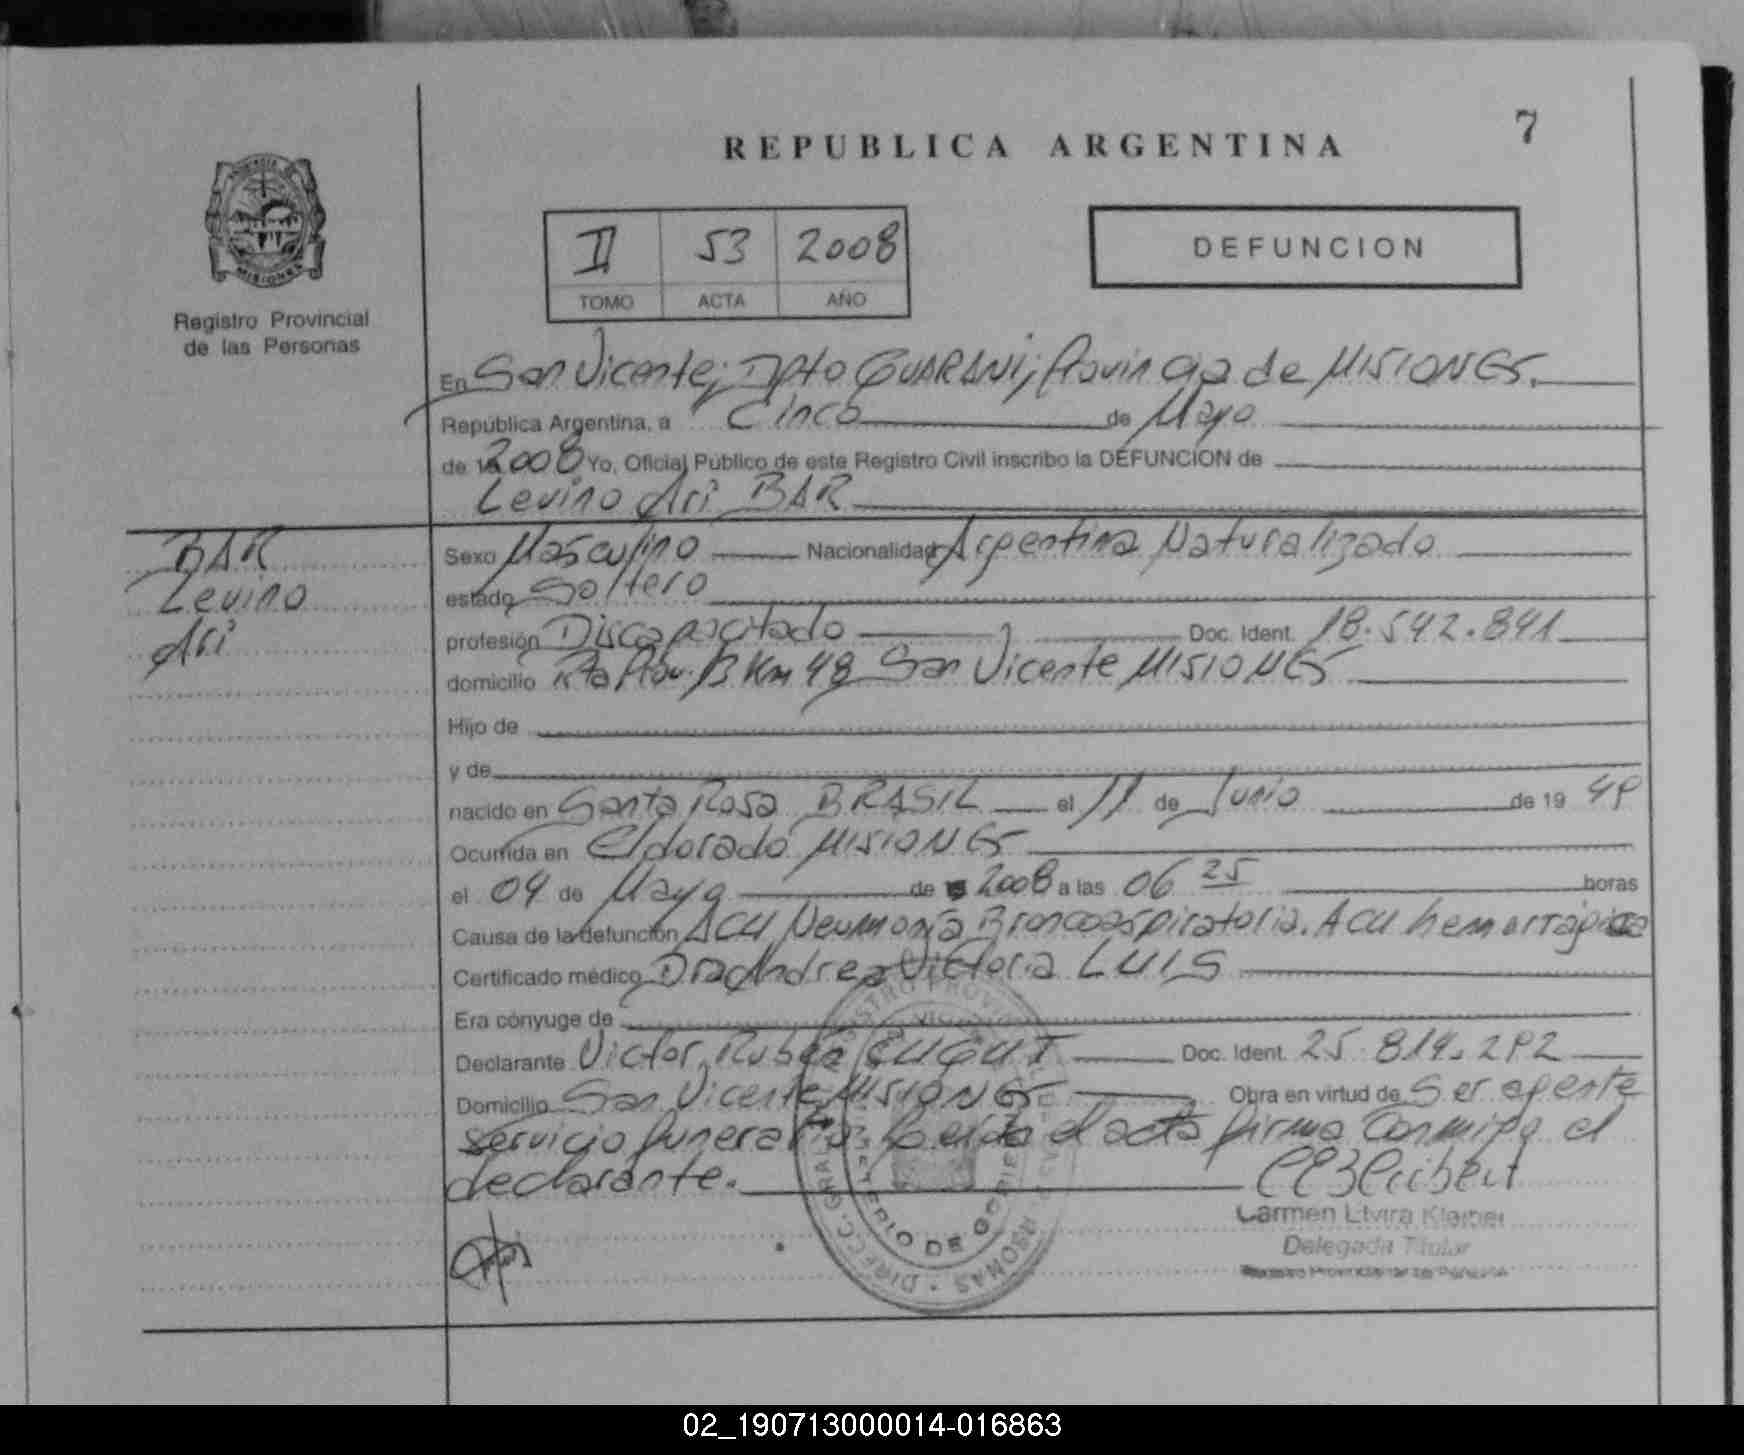 7
REPUBLICA ARGENTINA
MISIONES
Registro Provincial
de las Personas
II 53 2008
TOMO ACTA AÑO
DEFUNCION
En San Vicente, Dpto GUARANI, Provincia de MISIONES.
República Argentina, a Cinco de Mayo
de 2008 Yo, Oficial Público de este Registro Civil inscribo la DEFUNCION de
Levino Ari BAR
BAR
Levino
Ari
Sexo Masculino Nacionalidad Argentina Naturalizado
estado Soltero
profesión Discapacitado Doc. Ident. 18.542.841
domicilio Rta Prov. 13 Km 48 San Vicente MISIONES
Hijo de
y de
nacido en Santa Rosa BRASIL el 11 de Junio de 19
Ocurrida en Eldorado MISIONES
el 04 de Mayo de 2008 a las 06 25 horas
Causa de la defunción ACV Neumonía Broncoaspiratoria. ACV hemorrágica
Certificado médico Dra Andrea Victoria LUIS
Era cónyuge de
Declarante Victor Rubén Doc. Ident. 25.819.292
Domicilio San Vicente MISIONES Obra en virtud de Ser agente
servicio funerario. Leída el acta firma Conmigo el
declarante.
Carmen Elvira
Delegada Titular
02_190713000014-016863